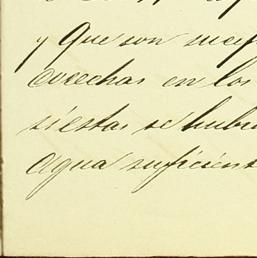 y que son mej
cosechas en los
siestas se hubi
agua suficient